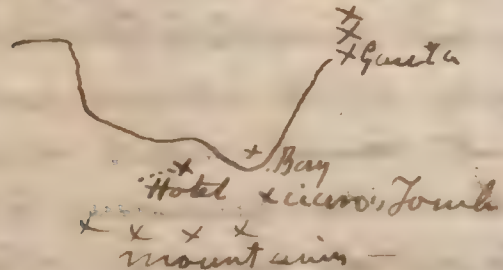 Gaeta
Bay
Hotel
Cicero's Tomb
mountains